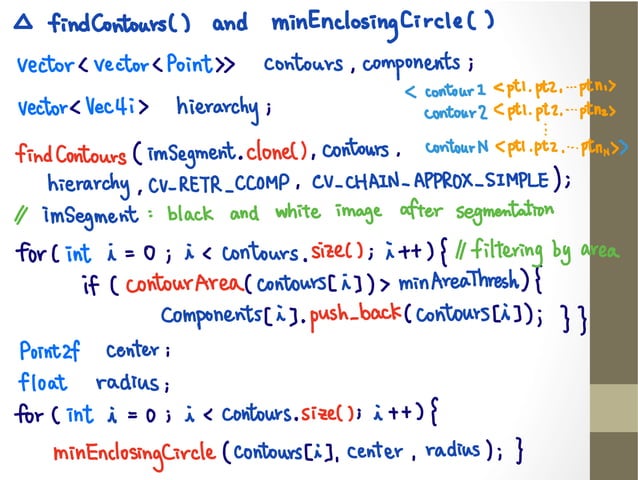 △ findContours() and minEnclosingCircle()
vector< vector<Point>> contours, components;
< contour1 <pt1.pt2,...ptn1>
vector<Vec4i> hierarchy;
contour2 <pt1.pt2,...ptn2>
⋮
findContours(imSegment.clone(), contours,
contourN <pt1.pt2,...ptnN>>
hierarchy, CV_RETR_CCOMP, CV_CHAIN_APPROX_SIMPLE);
// imSegment: black and white image after segmentation
for( int i = 0 ; i < contours.size(); i++){ // filtering by area
if ( contourArea(contours[i])> minAreaThresh){
Components[i].push_back(contours[i]); } }
Point2f center;
float radius;
for( int i = 0 ; i < contours.size(); i++){
minEnclosingCircle (contours[i], center, radius); }